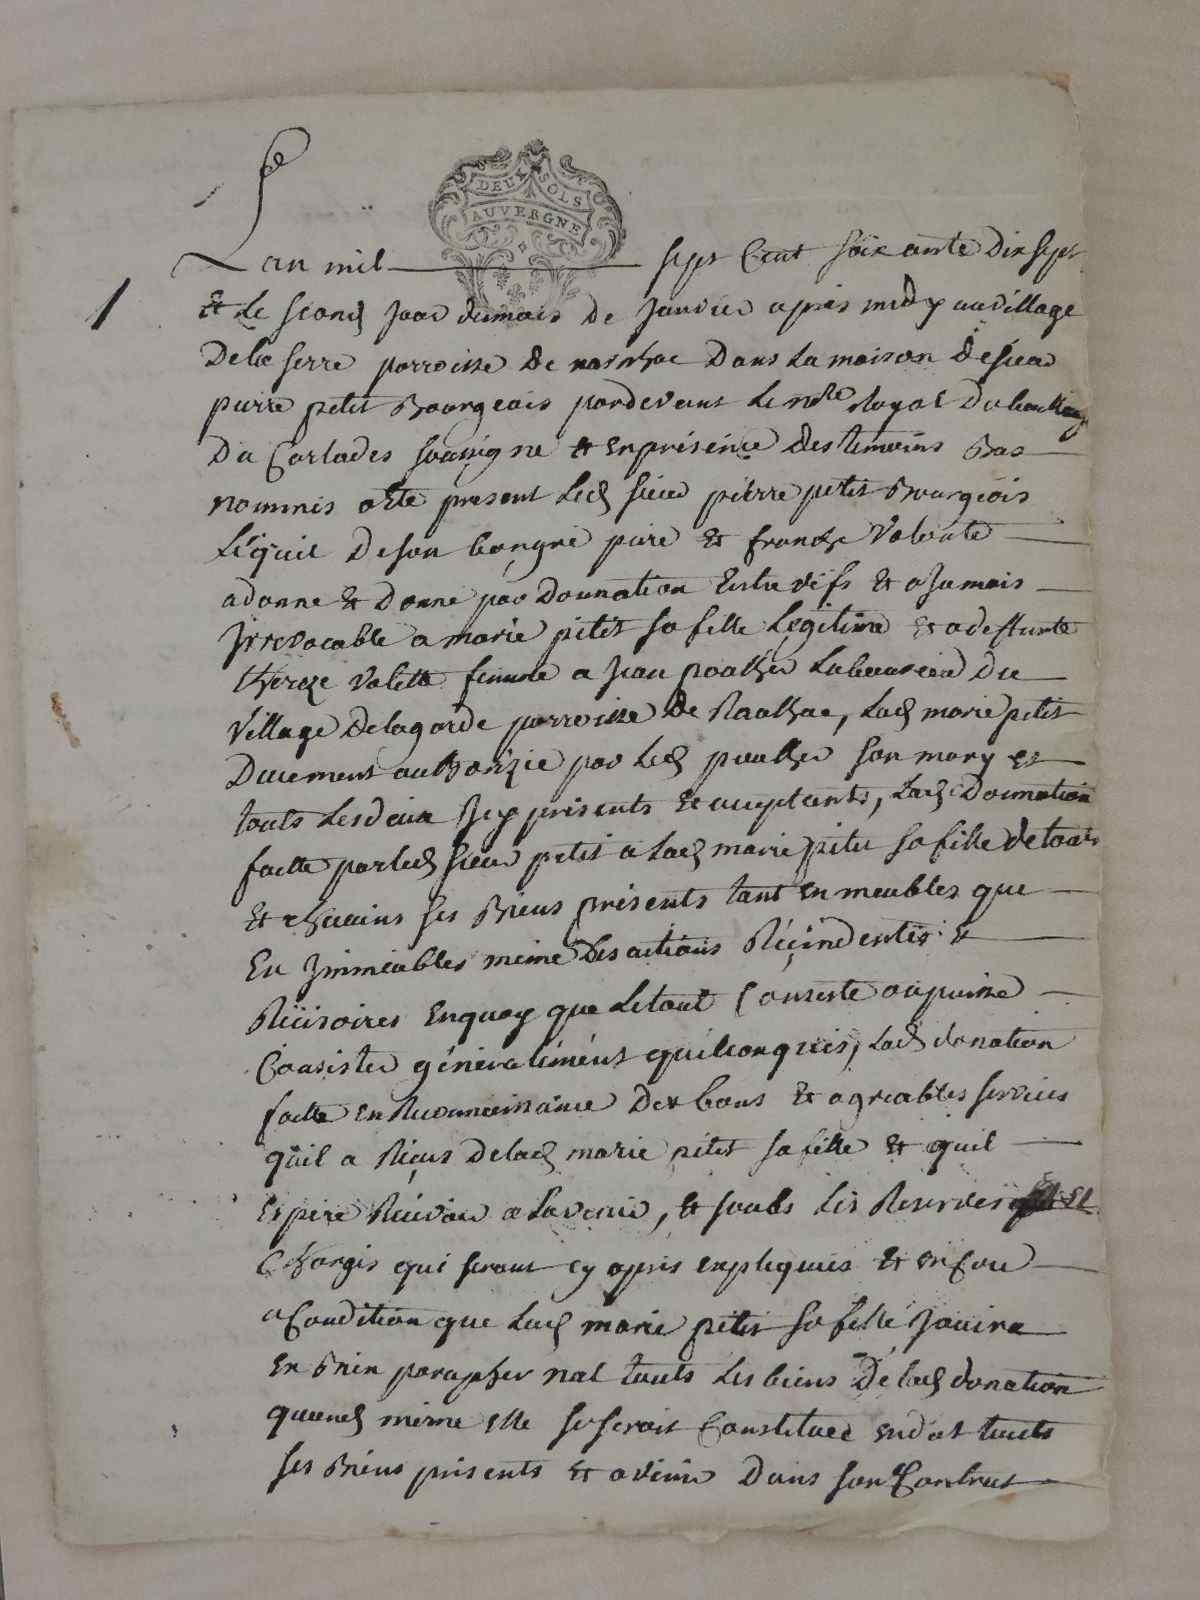 DEUX SOLS
AUVERGNE
1
Lan mil sept Cent soixante Dix sept
et Le second Jour dumois De Janvier apres midy au village
Dela serre parroisse de narnhac Dans La maison de sieur
pierre petit Bourgeois pardevant Le nore Royal Du bailliage
Du Carlades soussigne et En présence des temoins Bas
nommés a este present Led sieur pierre petit Bourgeois
Lequel De son bongré pure et franche Volonte
a donne et Donne par Dounation Entre vifs et a Jamais
Irrevocable a marie petit sa fille Legitime et a deffunte
thereze Valette femme a Jean Laboureur Du
village Delagarde parroisse De Raulhac, Lad marie petit
Duement authorizée par Led son mary et
touts Les deux Icy présents et acceptants, Lad Dounation
faitte par led sieur petit a Lad marie petit sa fille de touts
et chacuns ses Biens présents tant en meubles que
En Immeubles meme Des actions Rescindentes et
Rescisoires En quoy que Le tout Consiste ou puisse
Consister généralement quelconques, Lad donation
faitte en Reconnoissance Des bons et agreables services
quil a Reçus Delad marie petit sa fille et quil
Espere Recevoir a Lavenir, et soubs Les Reserves et
Charges qui seront cy apres expliquées et encore
a Condition que Lad marie petit sa fille Jouira
en Bien paraphernal touts Les biens De lad donation
quand même elle se seroit Constituée en dot touts
ses Biens présents et a venir Dans son Contrat